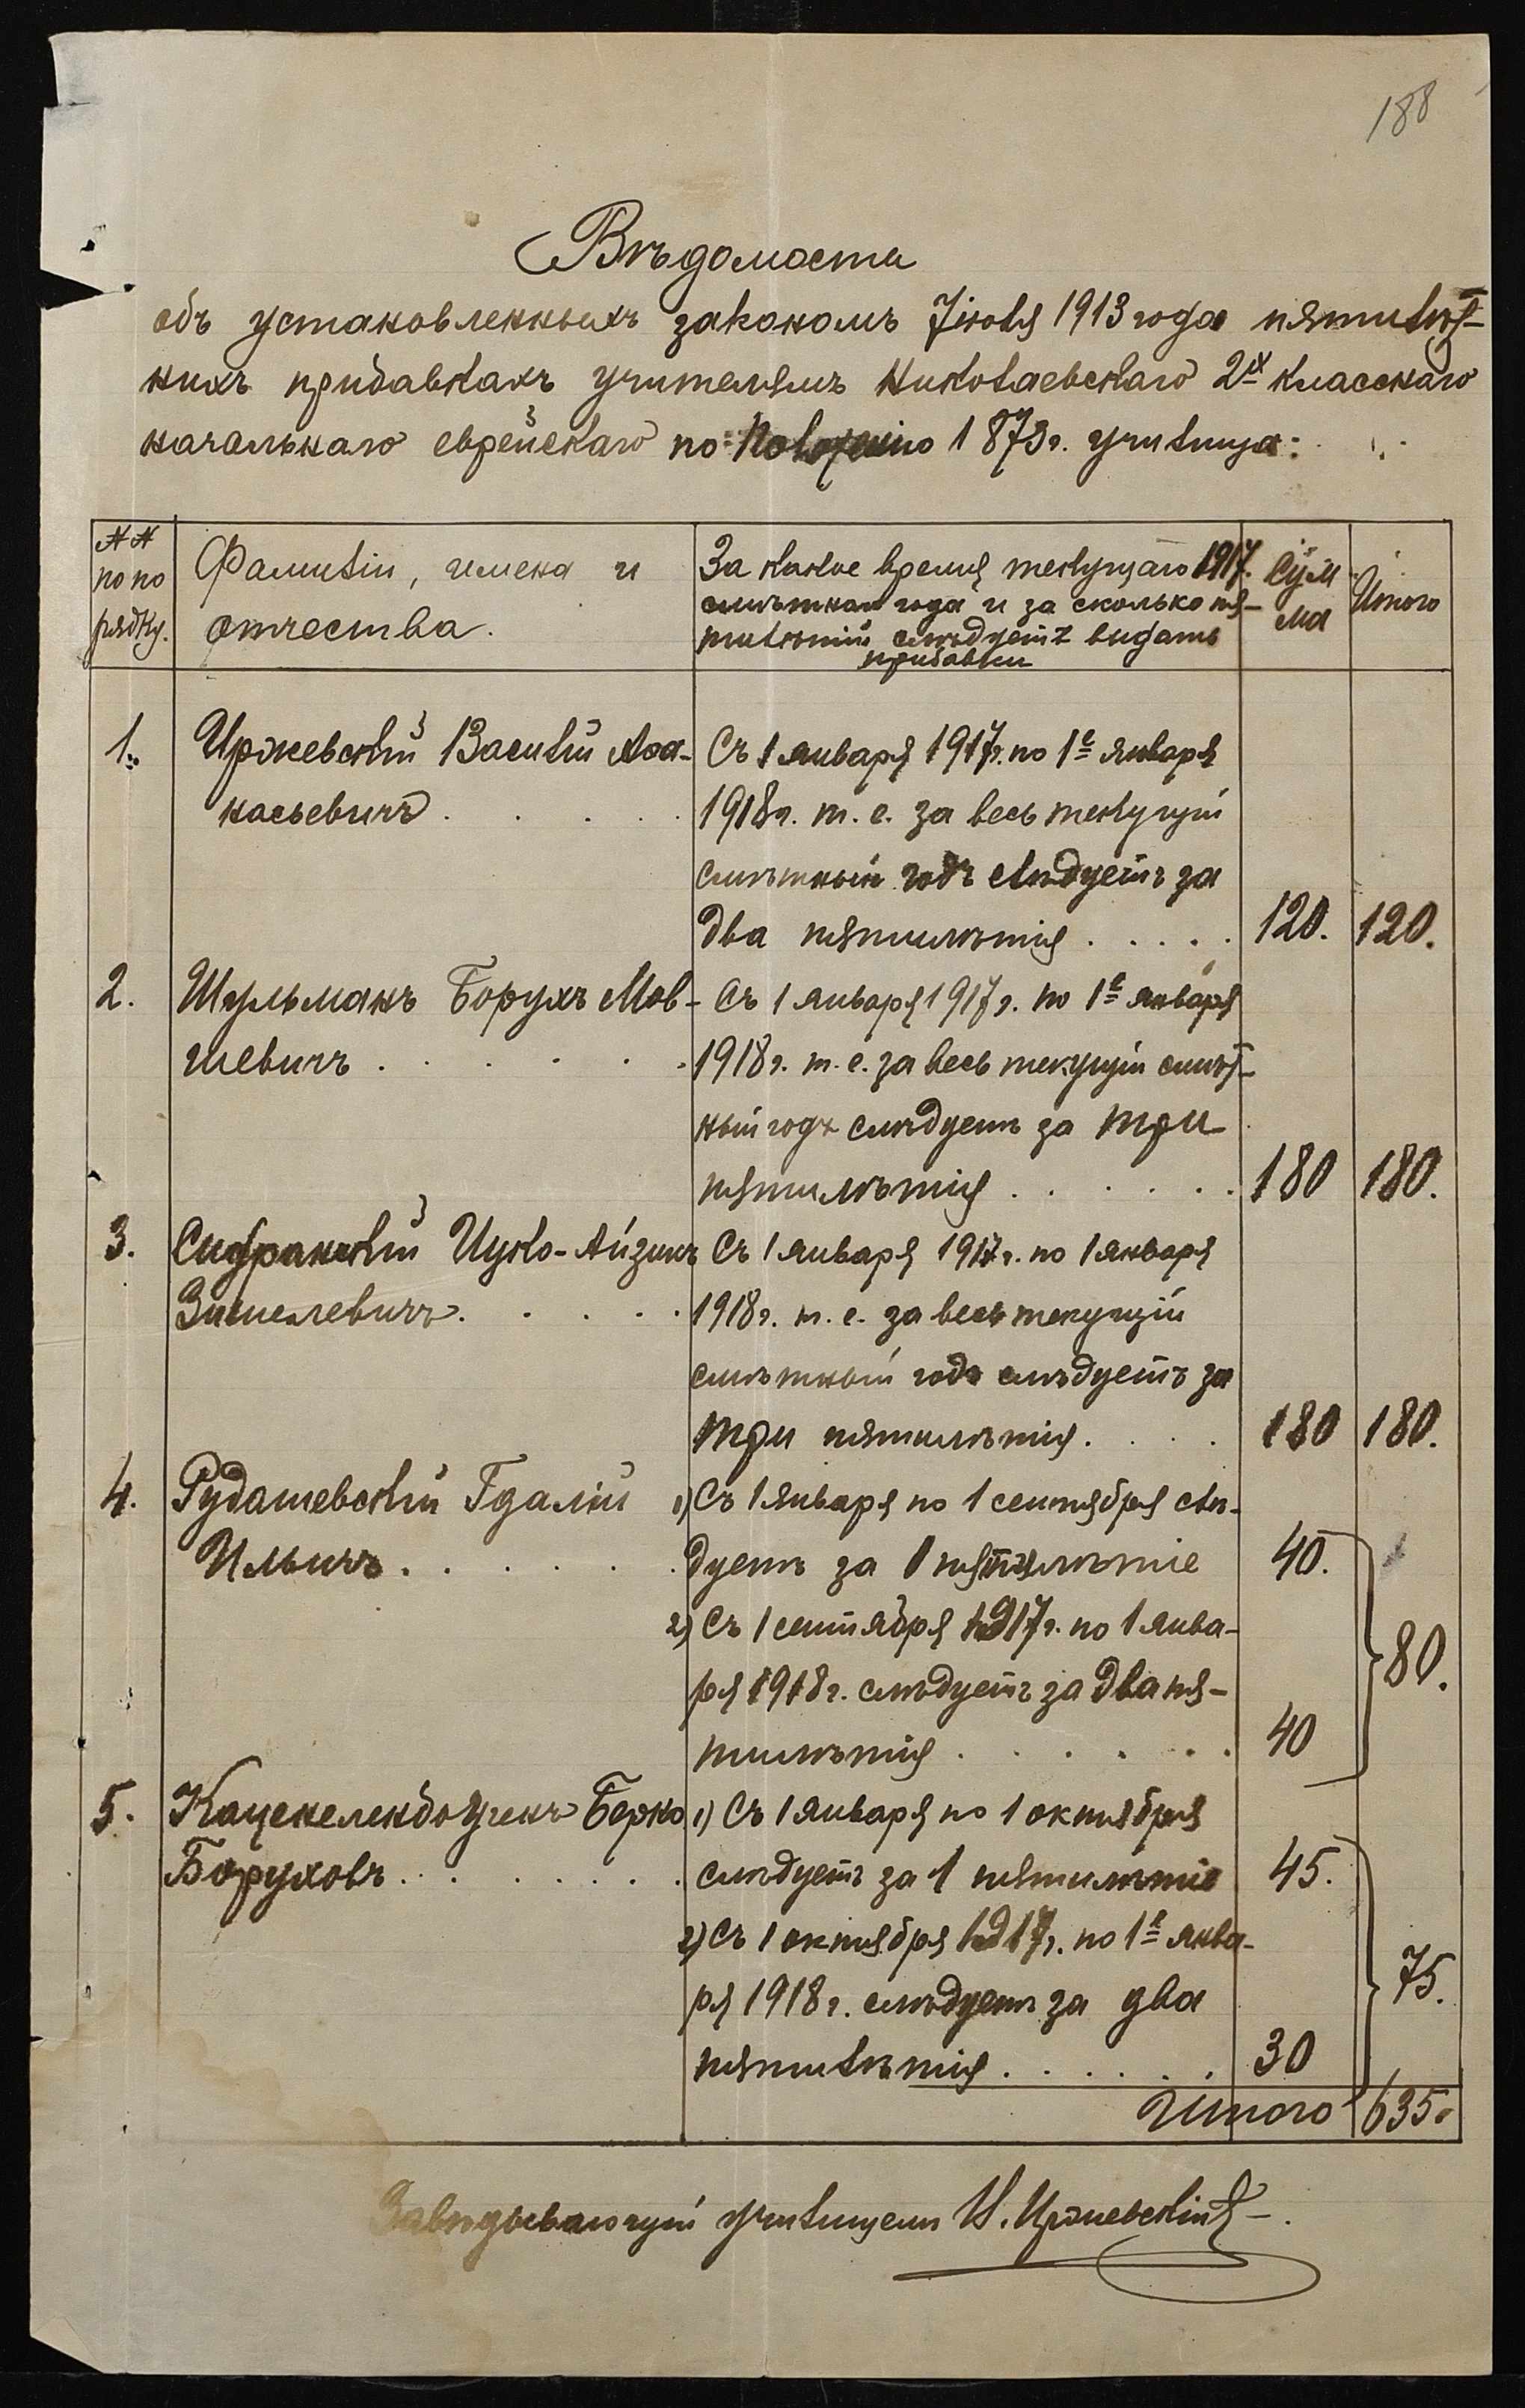 188
Вѣдомость
объ установленныхъ закономъ 7 іюля 1913 года пятилѣт-
нихъ прибавкахъ учителямъ Николаевскаго 2х класснаго
начальнаго еврейскаго по Положенію 1873 г. училища:
№№ по порядку.
Фамиліи, имена и отчества.
За какое время текущаго 1917 г.
смѣтнаго года и за сколько пя-
тилѣтій слѣдуетъ выдать
прибавки
Сумма
Итого
1. Иржевскій Василій Аѳа- Съ 1 января 1917 г. по 1е января
насьевичъ . . . . . 1918 г. т. е. за весь текущій
смѣтный годъ слѣдуетъ за
два пятилѣтія . . . . . 120. 120.
2. Шульманъ Борухъ Мов- Съ 1 января 1917 г. по 1е января
шевичъ . . . . . . 1918 г. т. е. за весь текущій смѣт-
ный годъ слѣдуетъ за три
пятилѣтія . . . . . . 180 180.
3. Ицко-Айзикъ Съ 1 января 1917 г. по 1 января
Зимелевичъ . . . . . 1918 г. т. е. за весь текущій
смѣтный годъ слѣдуетъ за
три пятилѣтія . . . . 180 180.
4. Рудашевскій Гдалій 1) Съ 1 января по 1 сентября слѣ-
Ильичъ . . . . . . дуетъ за 1 пятилѣтіе 40.
2) Съ 1 сентября 1917 г. по 1 янва-
ря 1918 г. слѣдуетъ за два пя- 80.
тилѣтія . . . . . . 40
5. Каценеленбогенъ Берко 1) Съ 1 января по 1 октября
Боруховъ . . . . . . . слѣдуетъ за 1 пятилѣтіе 45.
2) Съ 1 октября 1917 г. по 1е янва-
ря 1918 г. слѣдуетъ за два 75.
пятилѣтія . . . . . . 30
Итого 635.
Завѣдывающій училищемъ Иржевскій